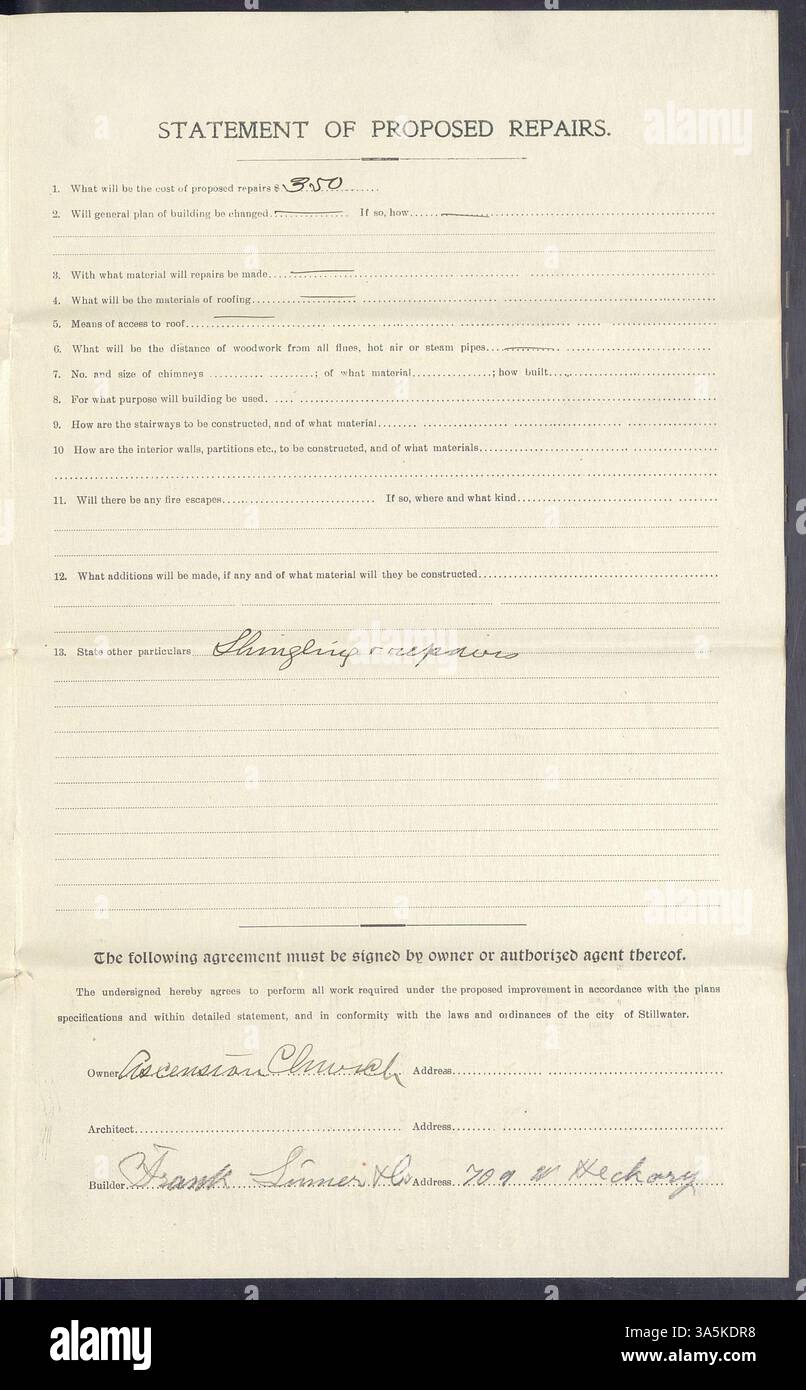 STATEMENT OF PROPOSED REPAIRS.
1. What will be the cost of proposed repairs $ 350
2. Will general plan of building be changed. If so, how
3. With what material will repairs be made
4. What will be the materials of roofing
5. Means of access to roof
6. What will be the distance of woodwork from all flues, hot air or steam pipes
7. No. and size of chimneys ; of what material ; how built
8. For what purpose will building be used.
9. How are the stairways to be constructed, and of what material
10 How are the interior walls, partitions etc., to be constructed, and of what materials
11. Will there be any fire escapes If so, where and what kind
12. What additions will be made, if any and of what material will they be constructed
13. State other particulars Shingling & repairs
The following agreement must be signed by owner or authorized agent thereof.
The undersigned hereby agrees to perform all work required under the proposed improvement in accordance with the plans
specifications and within detailed statement, and in conformity with the laws and ordinances of the city of Stillwater.
Owner Ascension Church Address
Architect Address
Builder Frank Linner & Co Address 709 W Heckory
alamy
Image ID: 3A5KDR8
www.alamy.com